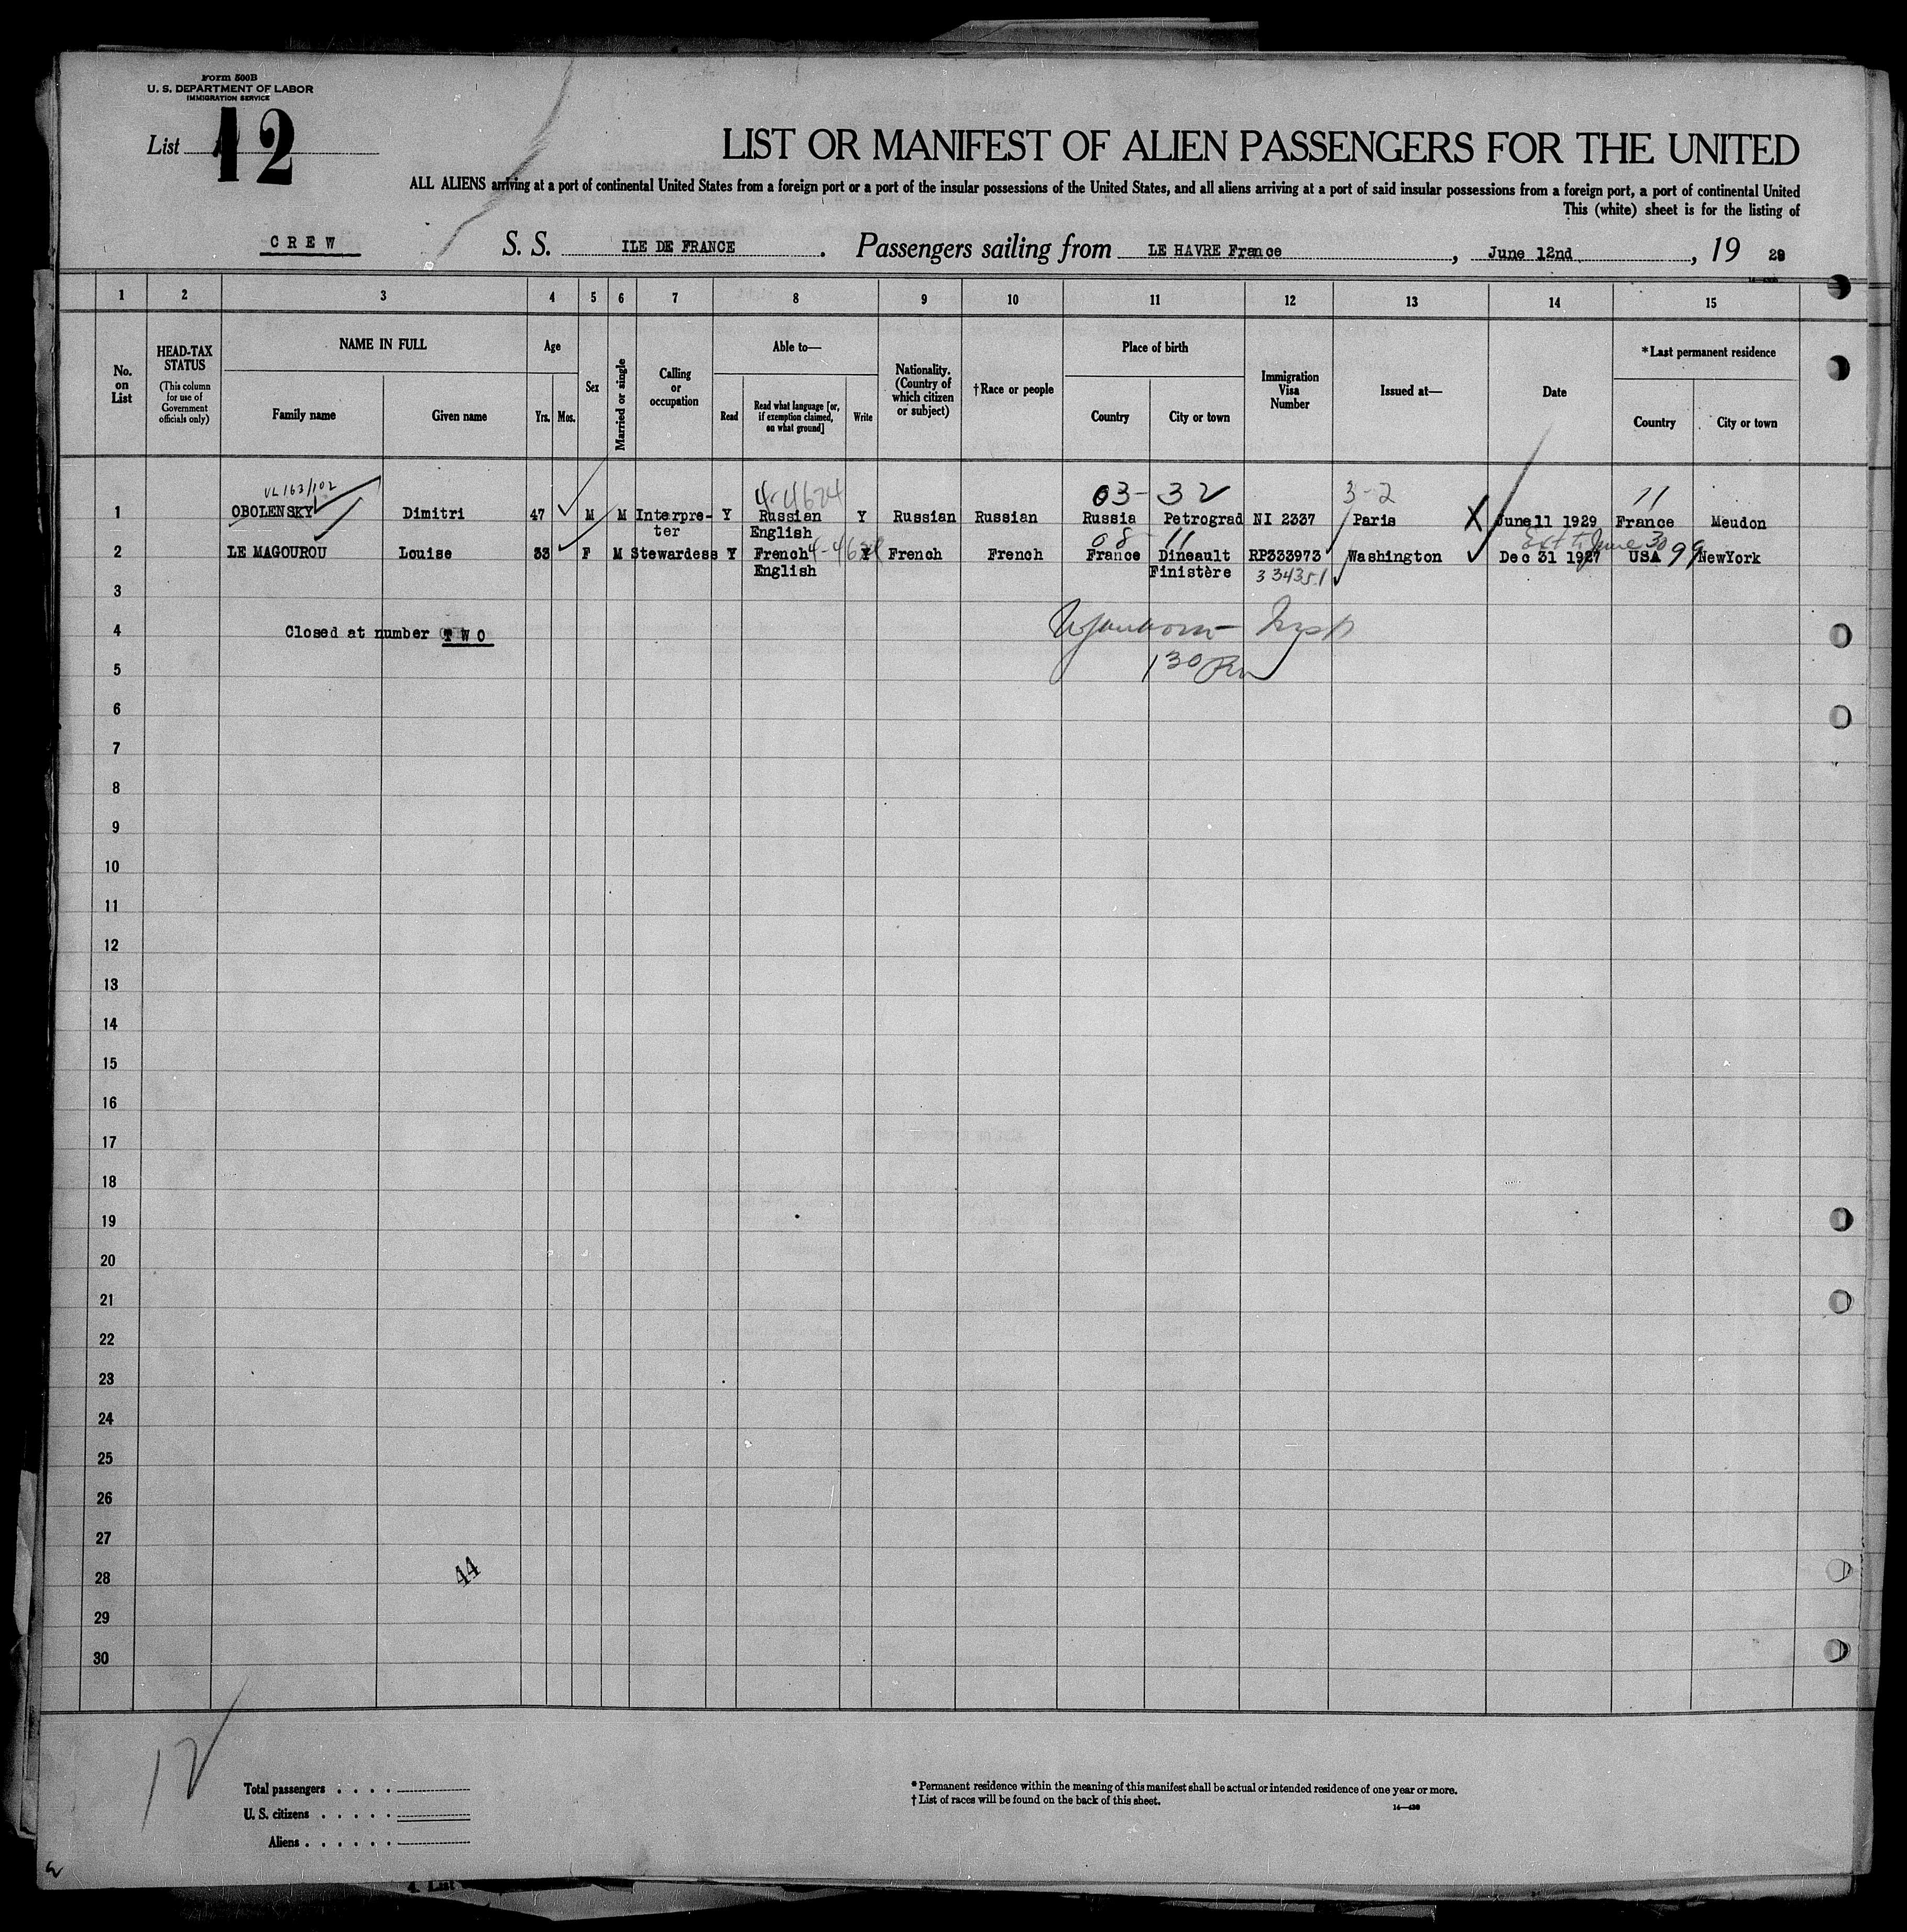 Form 500B
U. S. DEPARTMENT OF LABOR
IMMIGRATION SERVICE
List 12
LIST OR MANIFEST OF ALIEN PASSENGERS FOR THE UNITED
ALL ALIENS arriving at a port of continental United States from a foreign port or a port of the insular possessions of the United States, and all aliens arriving at a port of said insular possessions from a foreign port, a port of continental United
This (white) sheet is for the listing of
CREW S. S. ILE DE FRANCE . Passengers sailing from LE HAVRE France , June 12nd , 19 29
1 2 3 4 5 6 7 8 9 10 11 12 13 14 15
No. on List
HEAD-TAX STATUS
(This column for use of Government officials only)
NAME IN FULL
Family name Given name
Age
Yrs. Mos.
Sex
Married or single
Calling or occupation
Able to—
Read Read what language [or, if exemption claimed, on what ground] Write
Nationality. (Country of which citizen or subject)
†Race or people
Place of birth
Country City or town
Immigration Visa Number
Issued at—
Date
*Last permanent residence
Country City or town
VL 163/102 4-4624 03- 32 3-2 11
1 OBOLENSKY Dimitri 47 M M Interpre- Y Russian Y Russian Russian Russia Petrograd NI 2337 Paris X June 11 1929 France Meudon
ter English 08 11 Ext to June 30
2 LE MAGOUROU Louise 33 F M Stewardess Y French 4-4624 Y French French France Dineault RP333973 Washington Dec 31 1927 USA 99 NewYork
English Finistère 334351
3
4 Closed at number TWO
5 130
6
7
8
9
10
11
12
13
14
15
16
17
18
19
20
21
22
23
24
25
26
27
28 44
29
30
12
Total passengers . . . .
U. S. citizens . . . . .
Aliens . . . . . .
* Permanent residence within the meaning of this manifest shall be actual or intended residence of one year or more.
† List of races will be found on the back of this sheet.
14—430
4. List